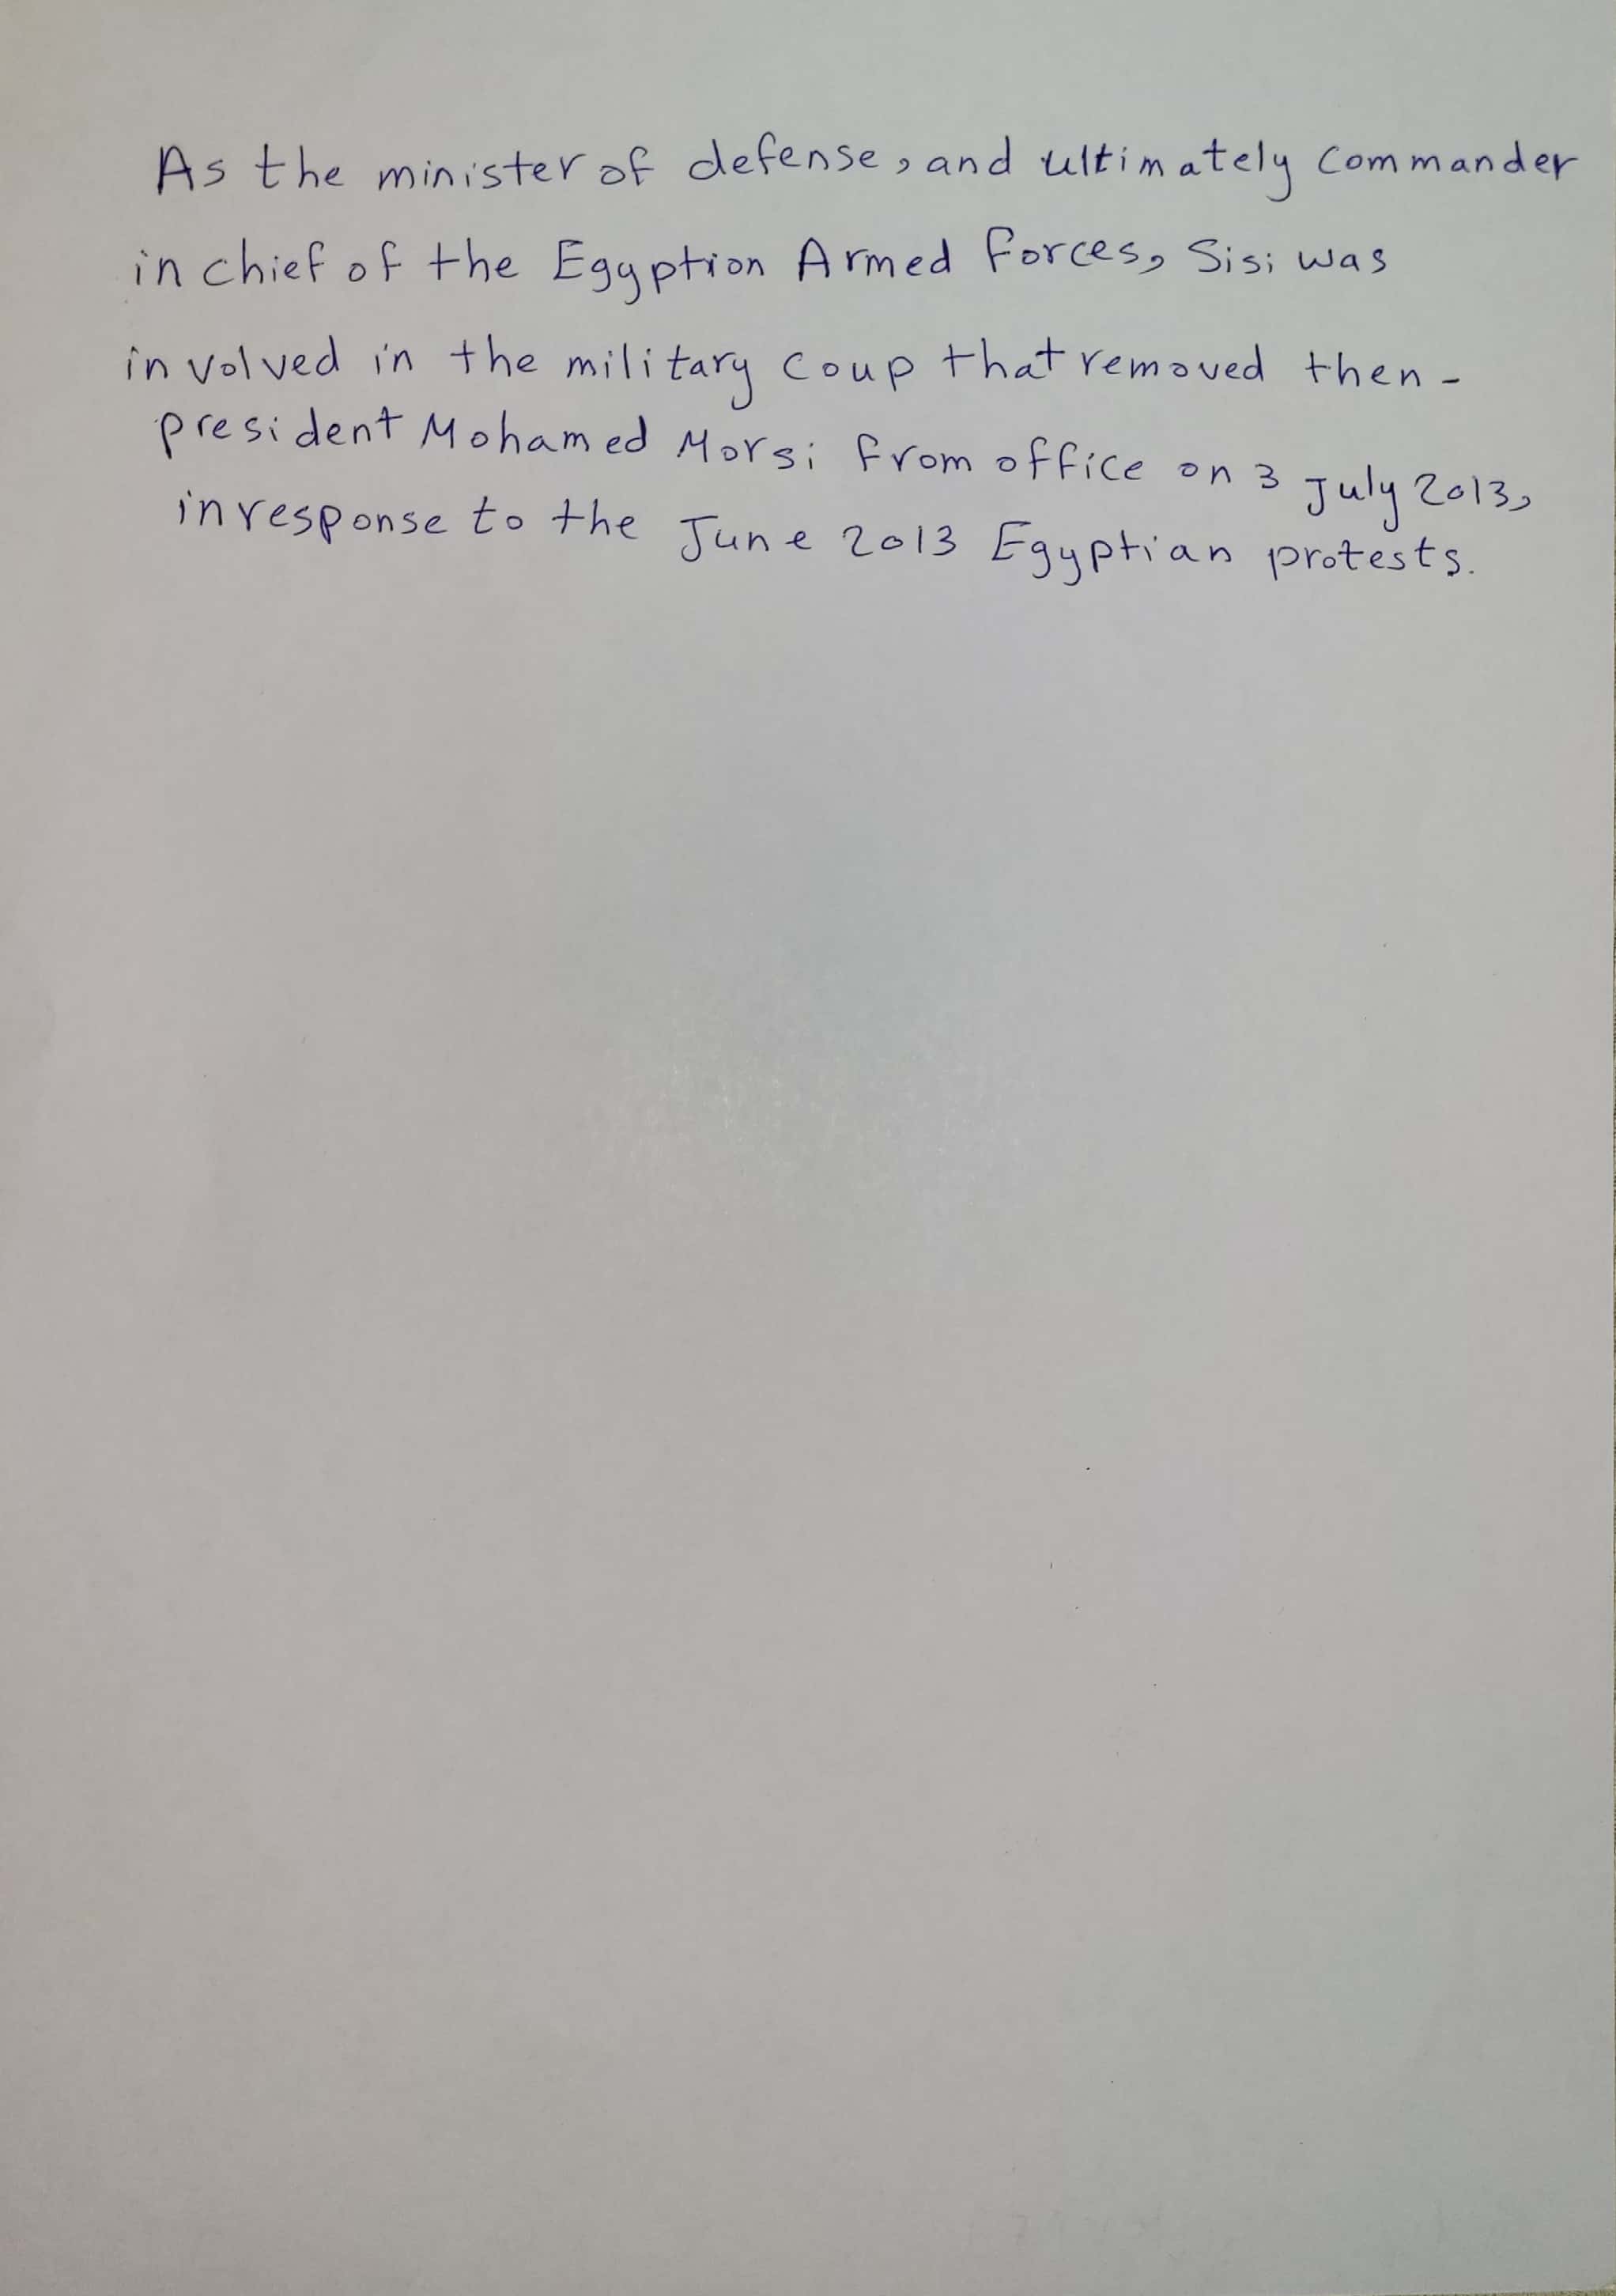 As the minister of defense, and ultimately commander
in chief of the Egyption Armed forces, Sisi was
involved in the military coup that removed then-
president Mohamed Morsi from office on 3 July 2013,
in response to the June 2013 Egyptian protests.